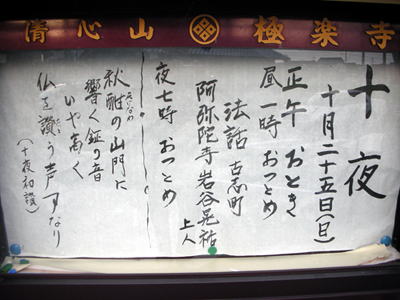 清心山 極楽寺
十夜
十月二十五日(日)
正午 おとき
昼一時 おつとめ
法話 古志町
阿弥陀寺 岩谷晃祐 上人
夜七時 おつとめ
秋酣の山門に
響く鉦の音
いや高く
仏を讃う声すなり
(十夜和讃)